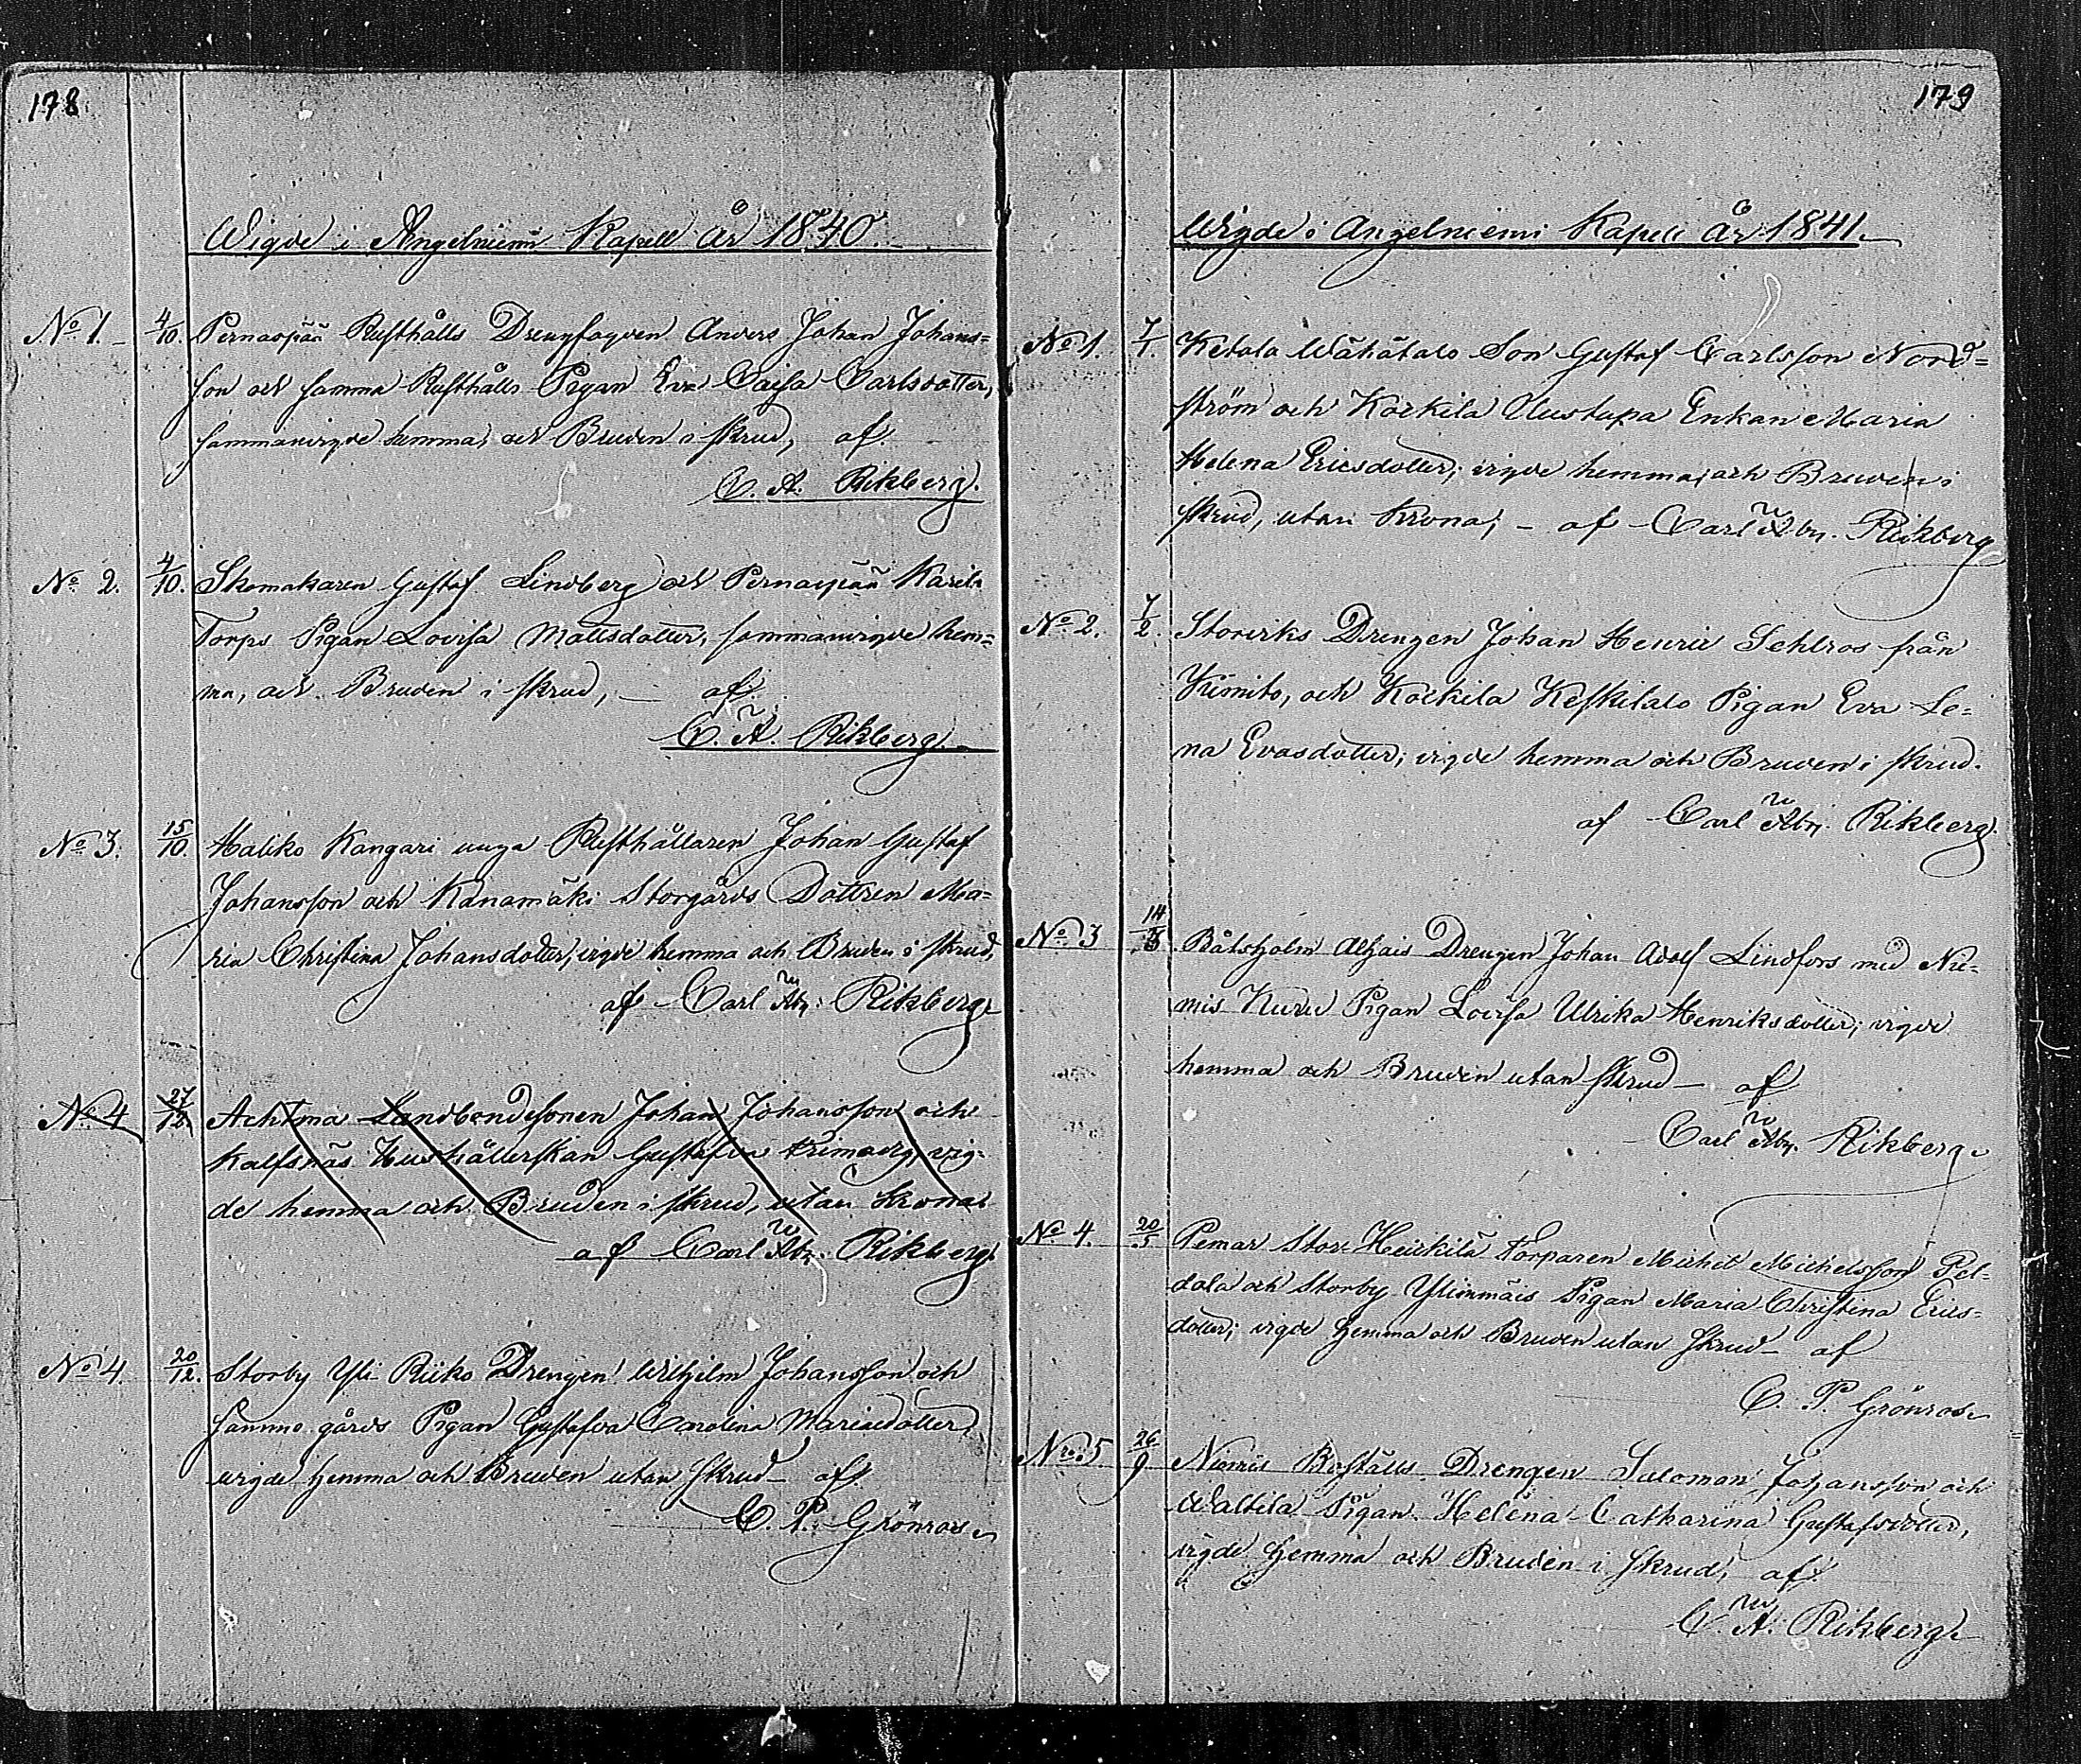 178
Wigde i Angelniemi Kapell År 1840.
No 1. 4/10. Pernaspää Rusthålls Drengfogden Anders Johan Johans=
son och samma Rusthålls Pigan Eva Caisa Carlsdotter,
sammanvigde hemma, och Bruden i skrud, af
C. A. Rikberg.
No 2. 4/10. Skomakaren Gustaf Lindberg och Pernaspää Karila
Torps Pigan Lovisa Mattsdotter, sammanvigde hem=
ma, och Bruden i skrud, — af
C. A. Rikberg.
No 3. 15/10. Haliko Kangari unga Rusthållaren Johan Gustaf
Johansson och Kanamäki Storgårds Dottren Ma=
ria Christina Johansdotter, vigde hemma och Bruden i skrud,
af Carl Abr: Rikberg
No 4 27/12. Achtma Landbondesonen Johan Johansson och
Kalfsnäs Hushållerskan Gustafva vig=
de hemma och Bruden i skrud, utan krona.
af Carl Abr: Rikberg.
No 4. 20/12. Storby Yli Riiko Drengen Wilhelm Johansson och
samma gårds Pigan Gustafva Carolina Mariaedotter,
wigde hemma och Bruden utan skrud — af
C. P. Grönroos.
179
Wigde i Angelniemi Kapell År 1841.
No 1. 7/1. Ketala Wähätalo Son Gustaf Carlsson Nord=
ström och Kockila Uustupa Enkan Maria
Helena Ericsdotter; vigde hemma, och Bruden i
skrud, utan krona; — af Carl Abr. Rikberg
No 2. 7/2. Storviks Drengen Johan Henric Sehlros från
Kimito, och Kockila Keskitalo Pigan Eva Le=
na Evasdotter; vigde hemma och Bruden i skrud.
af Carl Abr. Rikberg.
No 3 14/3 Båtsholm Drengen Johan Adolf Lindfors med Nie=
mis Kuru Pigan Lovisa Ulrika Henriksdotter; vigde
hemma och Bruden utan skrud — af
Carl Abr. Rikberg.
No 4. 20/5 Pemar Stor Heickilä Torparen Michel Michelsson Pel=
dola och Storby Ylimmäis Pigan Maria Christina Erics=
dotter; vigde hemma och Bruden utan skrud — af
C. P. Grönroos.
No 5 26/9 Niemis Boställs Drengen Salomon Johansson och
Waltila Pigan Helena Catharina Gustafsdotter,
vigde hemma och Bruden i skrud, af
C. A. Rikberg.